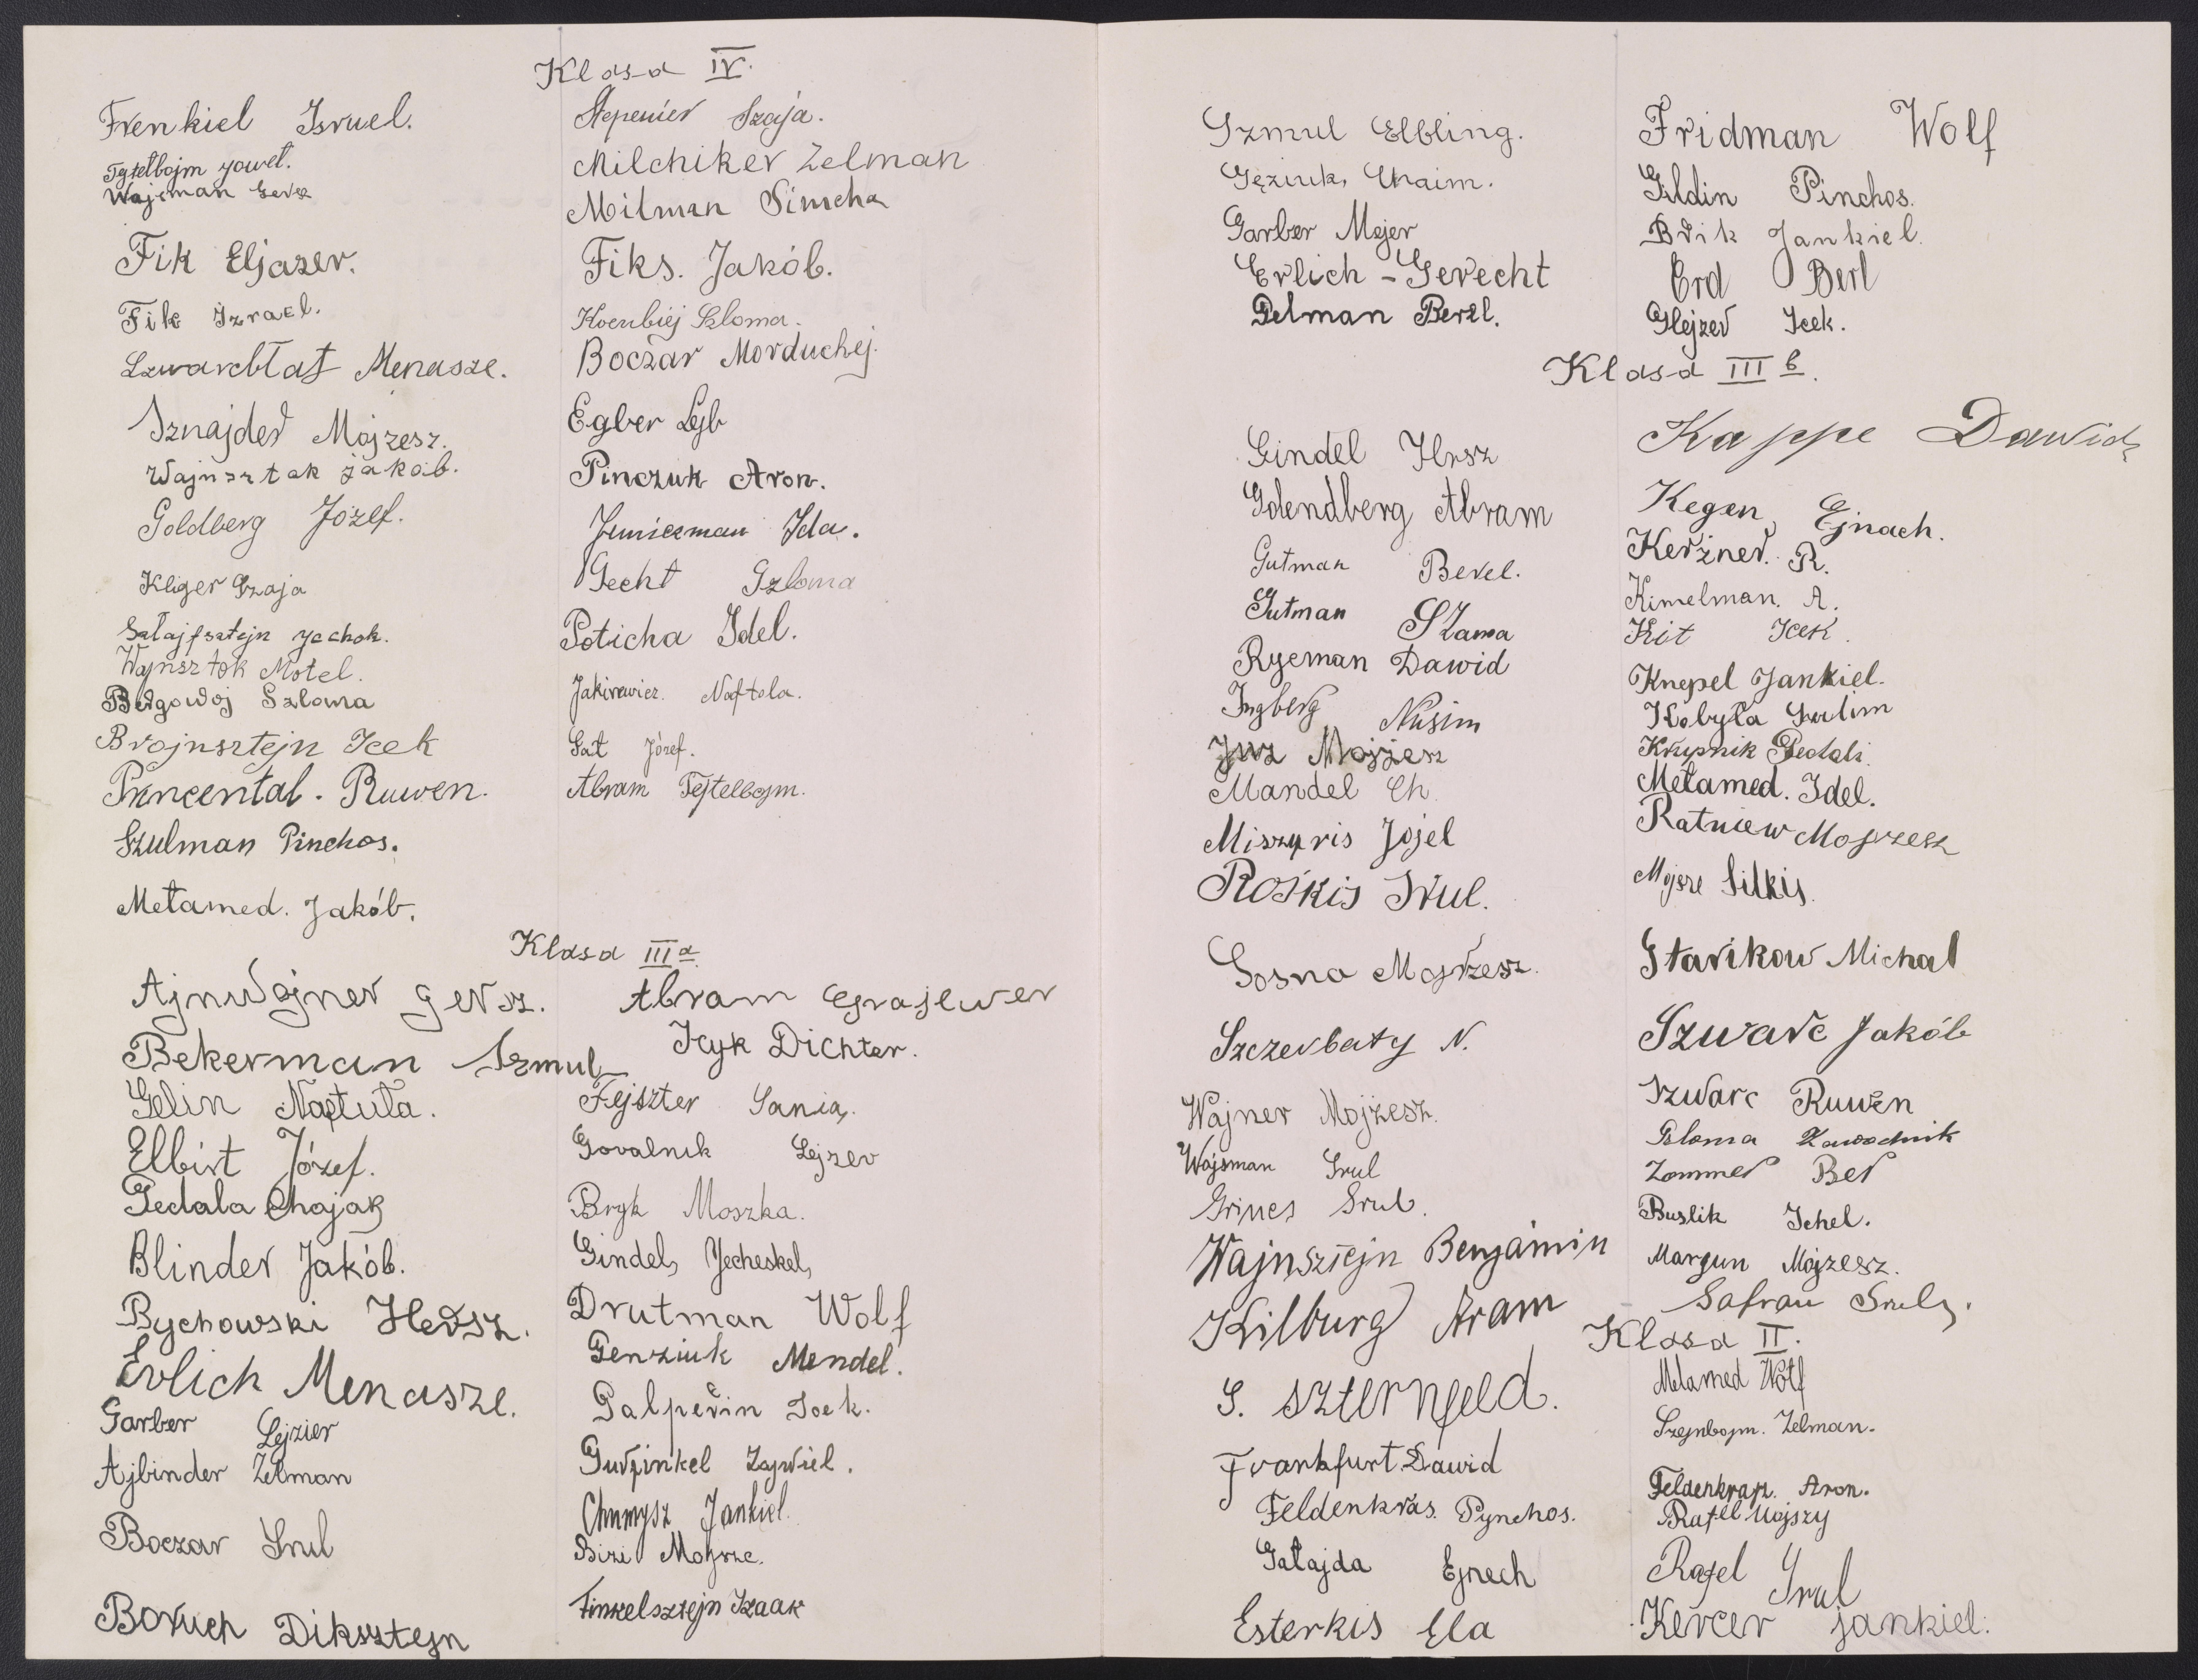 Klasa IV.
Frenkiel Isruel.
Tajtelbojm
Wajsman
Fik Eljazer.
Fik Izrael.
Szwarcblat Menasze.
Sznajder Mojzesz.
Wajnsztok Jakób.
Goldberg Józef.
Kliger Szaja
Wajnsztok Motel.
Szloma
Brojnsztejn Icek
Ruwen.
Szulman Pinchos.
Mełamed. Jakób.
Stepenier Szaja.
Milchiker Zelman
Milman Simcha
Fiks. Jakób.
Szloma.
Boczar Morduchej.
Egber Lejb
Pinczuk Aron.
Ida.
Gecht Szloma
Poticha Idel.
Jakirewicz. Naftola.
Sat Józef.
Abram Tejtelbojm.
Klasa III a
Ajnwojner Gersz.
Bekerman Szmul
Gelin Naftuła.
Elbirt Józef.
Gedala Chajak
Blinder Jakób.
Bychowski Hersz.
Erlich Menasze.
Garber Lejzier
Ajbinder Zelman
Boczar Srul
Boruch Diksztejn
Abram Grajewer
Icyk Dichter.
Fejszter Sania.
Govalnik Lejzer
Bryk Moszka.
Gindel, Jecheskel,
Drutman Wolf
Genziuk Mendel.
Galperin Icek.
Gurfinkel
Chmysz Jankiel.
Finkelsztejn Izaak
Szmul Elbling.
Gęziuk, Chaim.
Garber Mejer
Erlich - Gerecht
Delman Berel.
Fridman Wolf
Gildin Pinchos.
Brik Jankiel.
Erd Berl
Glejzer Icek.
Klasa III b.
Gindel Hrsz
Goldendberg Abram
Gutman Berel.
Gutman Szama
Rycman Dawid
Ingberg Nusim
Mojżesz
Mandel Ch.
Miszyris Jojel
Rośkis Srul.
Sosna Mojżesz.
Szczerbaty N.
Wajner Mojżesz.
Wajsman Srul
Grines Srul.
Wajnsztejn Benjamin
Kilburg Aram
S. Szternfeld.
Frankfurt Dawid
Feldenkras. Pynchos.
Gałajda Ejnech
Esterkis Ela
Kappe Dawid
Kegen, Ejnach.
Kerżner. R.
Kimelman. A.
Kit Icek.
Knepel Jankiel.
Kobyła
Krupnik Gedali.
Mełamed. Idel.
Ratniew Mojzesz
Mojsze Silkis.
Starikow Michał
Szwarc Jakób
Szwarc Ruwen
Szloma Zawodnik
Zommer Ber
Buslik Ichel.
Margun Mojzesz.
Safran Srul.
Klasa II.
Mełamed Wolf
Szejnbojm. Zelman.
Feldenkraz. Aron.
Rafel Mojszy
Rafel Srul
Kercer Jankiel.